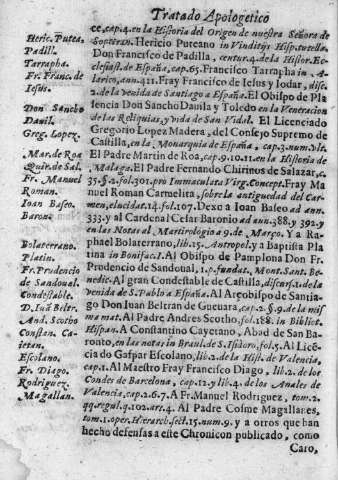 Tratado Apologetico
ce, cap. 4. en la Historia del Origen de nuestra Señora de
Sopetran. Hericio Puteano in Vindicijs Hisp. tutella.
Don Francisco de Padilla, centur. 4. de la Histor. Ec-
clesiast. de España, cap. 65. Francisco Tarrapha in A-
larico, ann. 411. Fray Francisco de Iesus y Iodar, disc.
2. de la venida de Santiago a España. El Obispo de Pla
sencia Don Sancho Dauila y Toledo en la Veneracion
de las Reliquias, y vida de San Vidal. El Licenciado
Gregorio Lopez Madera, del Consejo Supremo de
Castilla, en la Monarquia de España, cap. 3. num. vlt.
El Padre Martin de Roa, cap. 9. 10. 11. en la Historia de
Malaga. El Padre Fernando Chirinos de Salazar, c.
35. §. 2. fol. 301. pro Immaculata Virg. Concept. Fray Ma
nuel Roman Carmelita, sobre la antiguedad del Car-
men, elucidat. 14. fol. 107. Dexo a Iuan Baseo ad ann.
333. y al Cardenal Cesar Baronio ad ann. 388. y 392. y
en las Notas al Martirologio a 9. de Março. Y a Ra-
phael Bolaterrano, lib. 15. Antropol. y a Baptista Pla
tina in Bonifac. I. Al Obispo de Pamplona Don Fr.
Prudencio de Sandoual, 1. p. fundat. Mont. Sant. Be-
nedic. Al gran Condestable de Castilla, discurs. 1. de la
venida de S. Pablo a España. Al Arçobispo de Santia-
go Don Iuan Beltran de Gueuara, cap. 2. §. 9. de la mis
ma mat. Al Padre Andres Scotho, fol. 188. in Bibliot.
Hispan. A Constantino Cayetano, Abad de San Ba-
ronto, en las notas in Braul. de S. Isidoro, fol. 5. Al Licē-
ciado Gaspar Escolano, lib. 2. de la Hist. de Valencia,
cap. 1. Al Maestro Fray Francisco Diago, lib. 2. de los
Condes de Barcelona, cap. 12. y lib. 4. de los Anales de
Valencia, cap. 2. 6. 7. A Fr. Manuel Rodriguez, tom. 2.
qq. regul. q. 102. art. 4. Al Padre Cosme Magallanes,
tom. 1. oper. Hierarch. sect. 15. num. 9. y a otros que han
hecho defensas a este Chronicon publicado, como
Caro,
Heric. Putea.
Padill.
Tarrapha.
Fr. Franc. de
Iesus.
Don Sancho
Dauil.
Greg. Lopez.
Mar. de Roa
Quir. de Sal.
Fr. Manuel
Roman.
Ioan Baseo.
Baron.
Bolaterrano.
Platin.
Fr. Prudencio
de Sandouel.
Condestable.
D. Iuā Beltr.
And. Scotho
Constan. Ca-
ietan.
Escolano.
Fr. Diago.
Rodriguez.
Magallan.